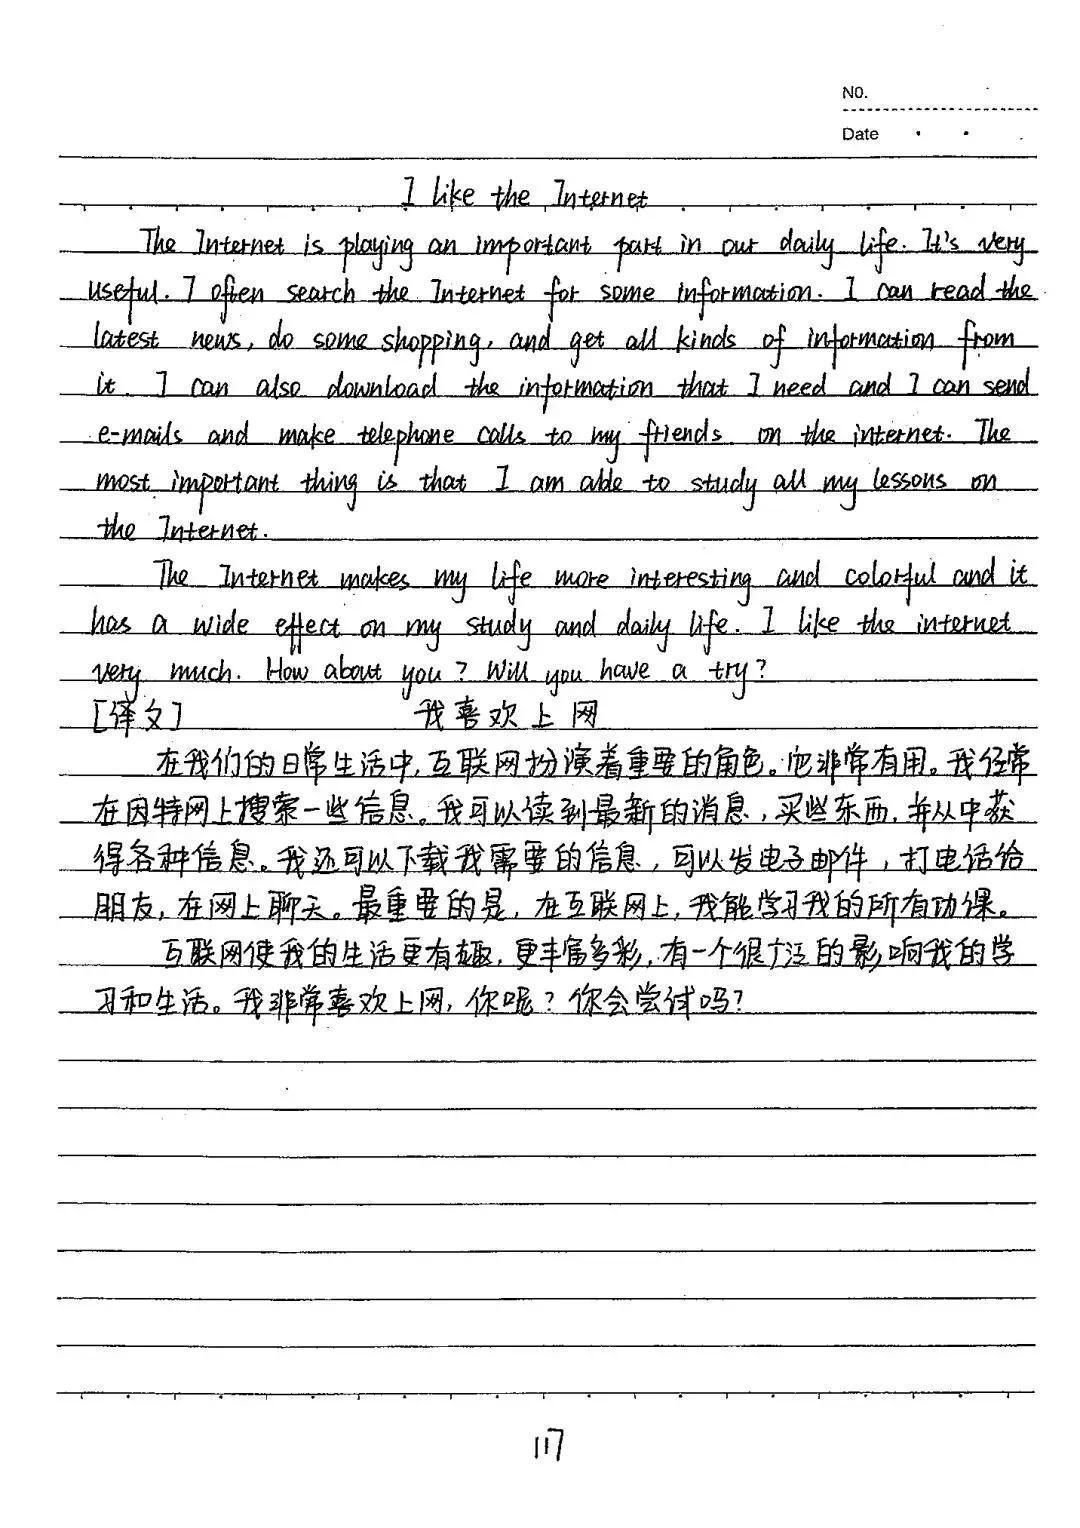 NO.
Date
I like the Internet
The Internet is playing an important part in our daily life. It's very
useful. I often search the Internet for some information. I can read the
latest news, do some shopping, and get all kinds of information from
it. I can also download the information that I need and I can send
e-mails and make telephone calls to my friends on the internet. The
most important thing is that I am able to study all my lessons on
the Internet.
The Internet makes my life more interesting and colorful and it
has a wide effect on my study and daily life. I like the internet
very much. How about you? Will you have a try?
[译文] 我喜欢上网
在我们的日常生活中,互联网扮演着重要的角色。它非常有用。我经常
在因特网上搜索一些信息。我可以读到最新的消息,买些东西,并从中获
得各种信息。我还可以下载我需要的信息,可以发电子邮件,打电话给
朋友,在网上聊天。最重要的是,在互联网上,我能学习我的所有功课。
互联网使我的生活更有趣,更丰富多彩,有一个很广泛的影响我的学
习和生活。我非常喜欢上网,你呢?你会尝试吗?
117